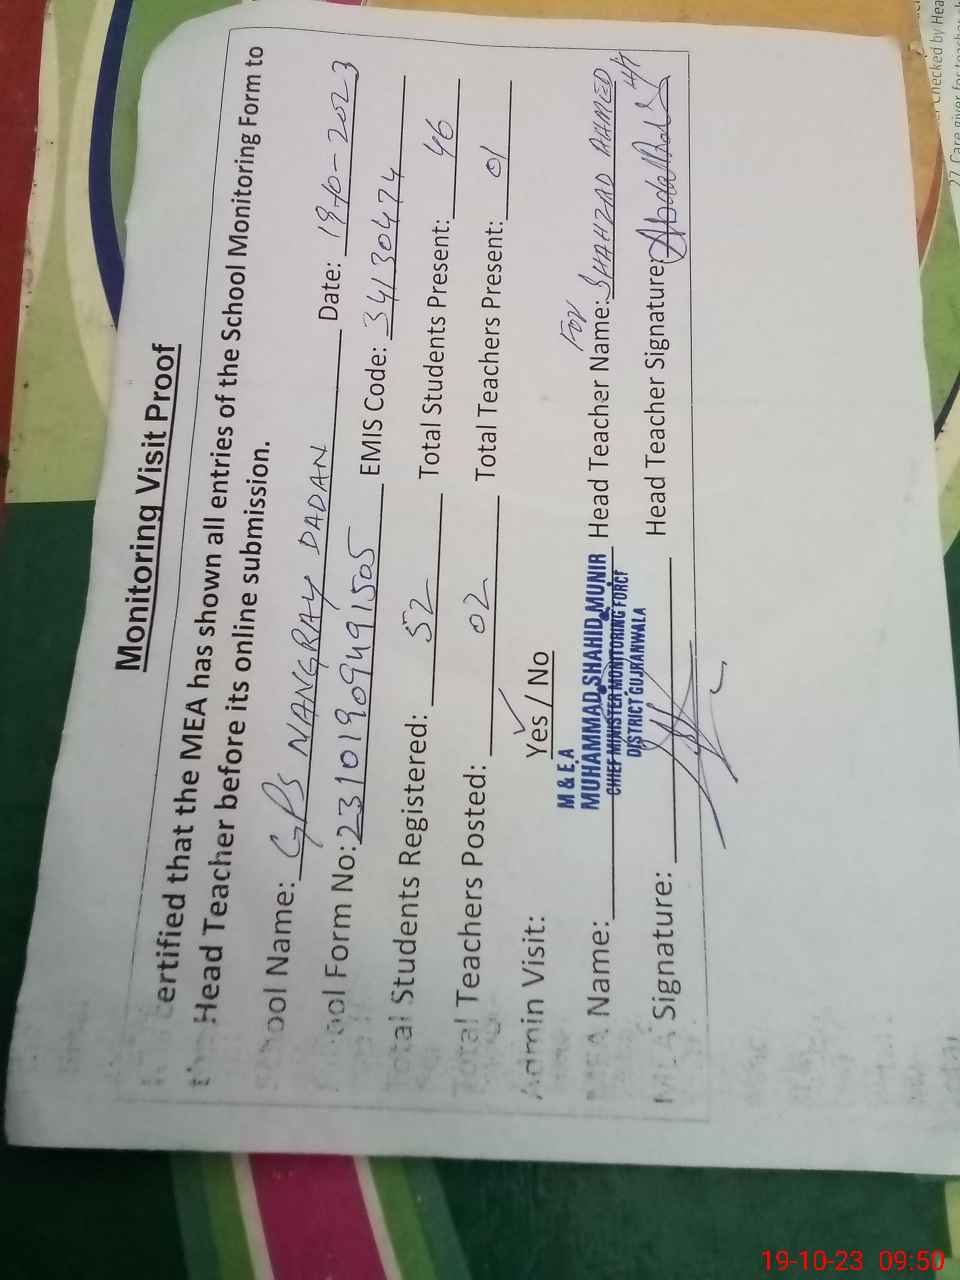 Monitoring Visit Proof
certified that the MEA has shown all entries of the School Monitoring Form to
the Head Teacher before its online submission.
School Name: GPS NANGRAY DADAN Date: 19-10-2023
School Form No: 23101909491505 EMIS Code: 34130474
Total Students Registered: 52 Total Students Present: 46
Total Teachers Posted: 02 Total Teachers Present: 01
Admin Visit: Yes / No
M & E.A
MUHAMMAD SHAHID MUNIR
CHIEF MINISTER MONITORING FORCE
DISTRICT GUJRANWALA
MEA Name: Head Teacher Name: For SHAHZAD AHMED
MEA Signature: Head Teacher Signature:
Checked by Hea
27. Care giver for
19-10-23 09:50